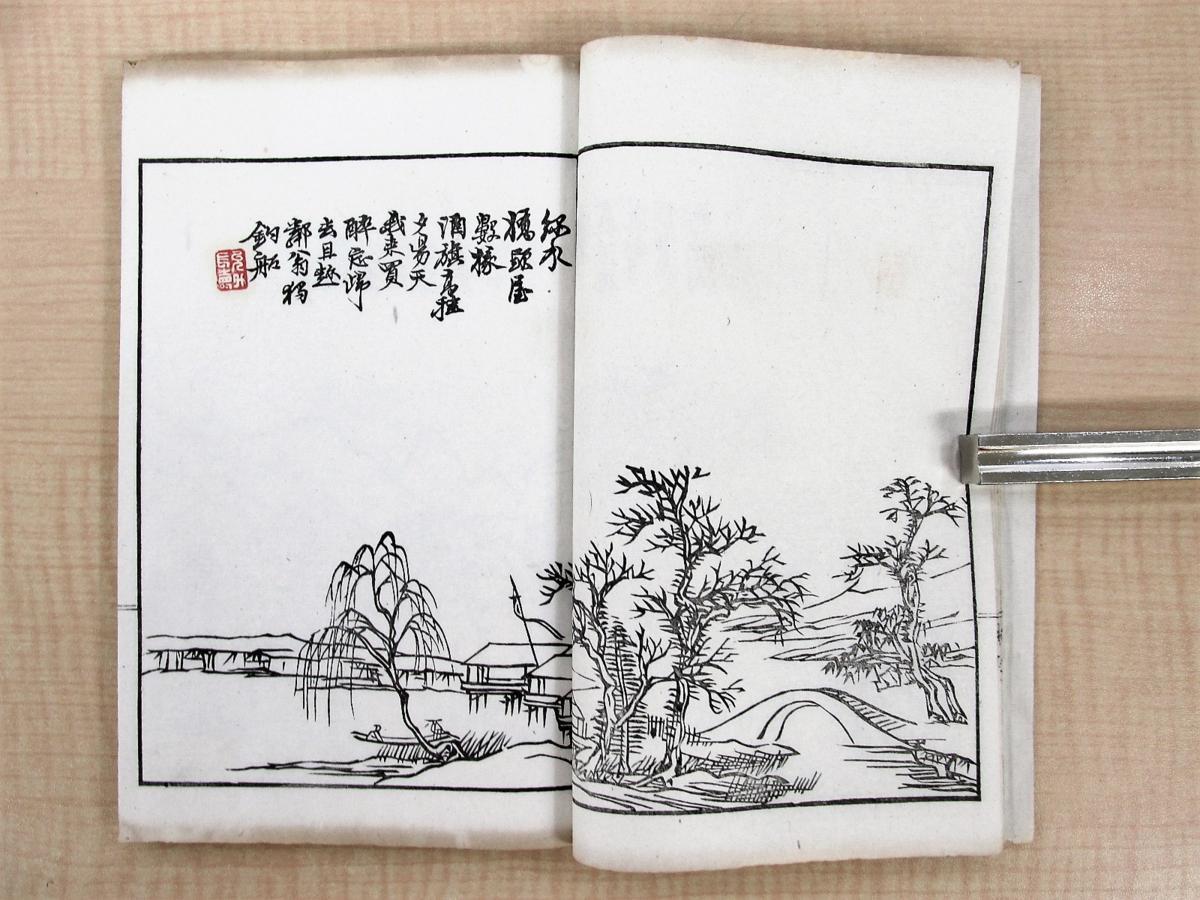 緑水
橋頭屋
數椽
酒旗高插
夕陽天
我來買
醉忘歸
去且趁
鄰翁獨
釣船